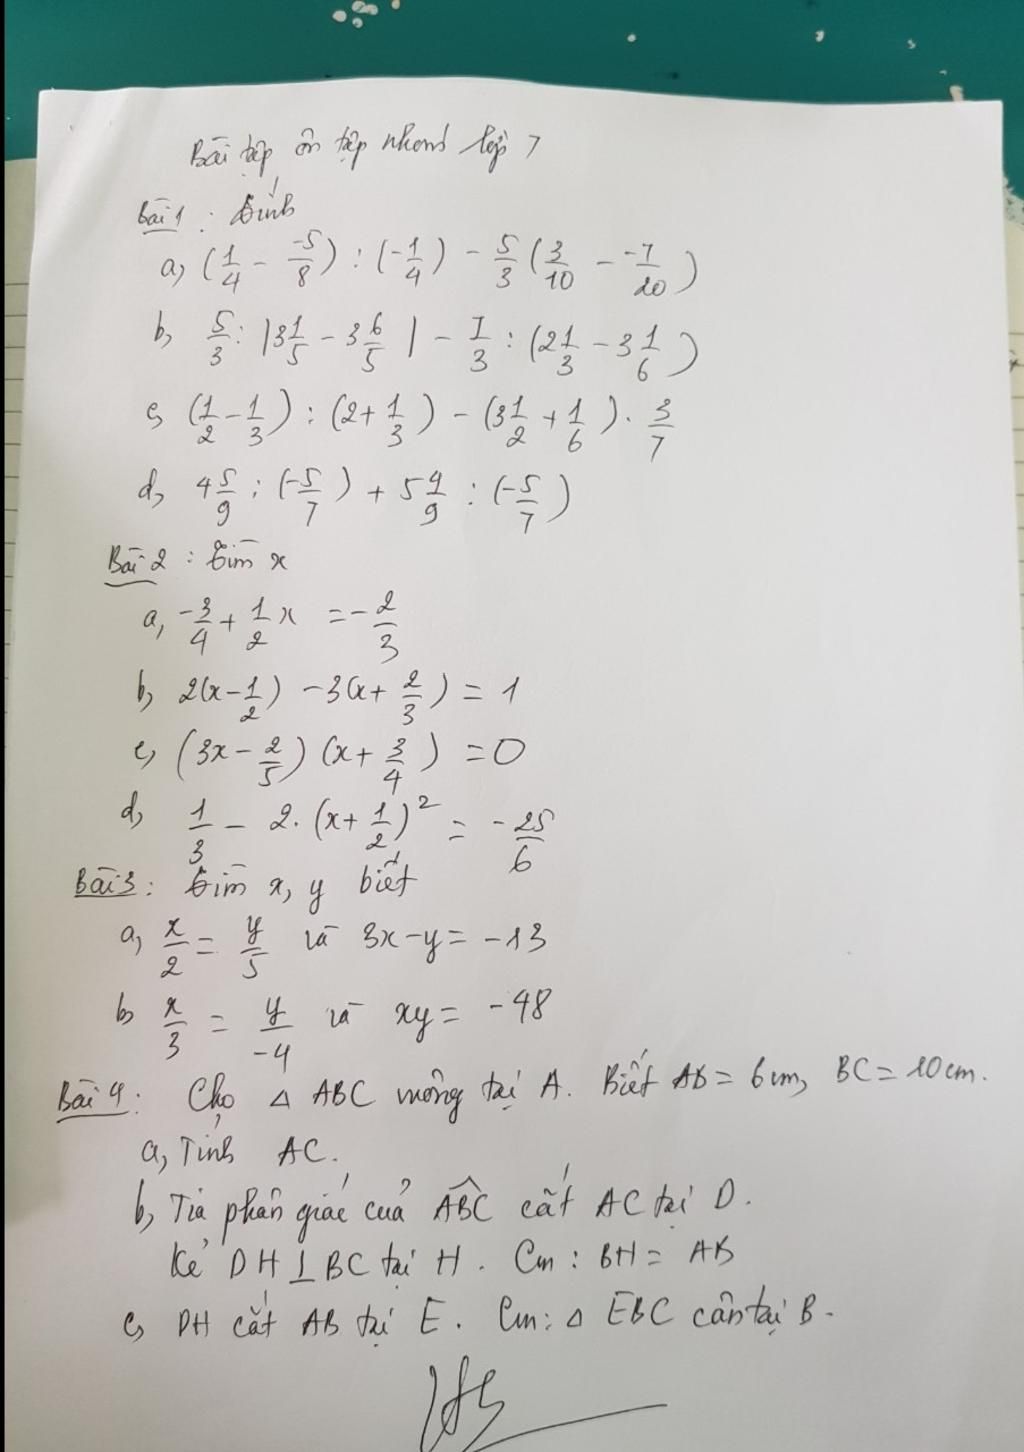 Bài tập ôn tập nhanh lớp 7
Bài 1: Tính
a, (1/4 - -5/8) : (-1/4) - 5/3 (3/10 - -7/20)
b, 5/3 : |3 1/5 - 3 6/5| - 7/3 : (2 1/3 - 3 1/6)
c, (1/2 - 1/3) : (2 + 1/3) - (3 1/2 + 1/6) . 3/7
d, 4 5/9 : (-5/7) + 5 4/9 : (-5/7)
Bài 2: Tìm x
a, -3/4 + 1/2 x = -2/3
b, 2(x - 1/2) - 3(x + 2/3) = 1
c, (3x - 2/5) (x + 3/4) = 0
d, 1/3 - 2. (x + 1/2)² = -25/6
Bài 3: Tìm x, y biết
a, x/2 = y/5 và 3x - y = -13
b, x/3 = y/-4 và xy = -48
Bài 4: Cho △ ABC vuông tại A. Biết AB = 6cm, BC = 10cm.
a, Tính AC.
b, Tia phân giác của ABC cắt AC tại D.
Kẻ DH ⊥ BC tại H. Cm: BH = AB
c, DH cắt AB tại E. Cm: △ EBC cân tại B.